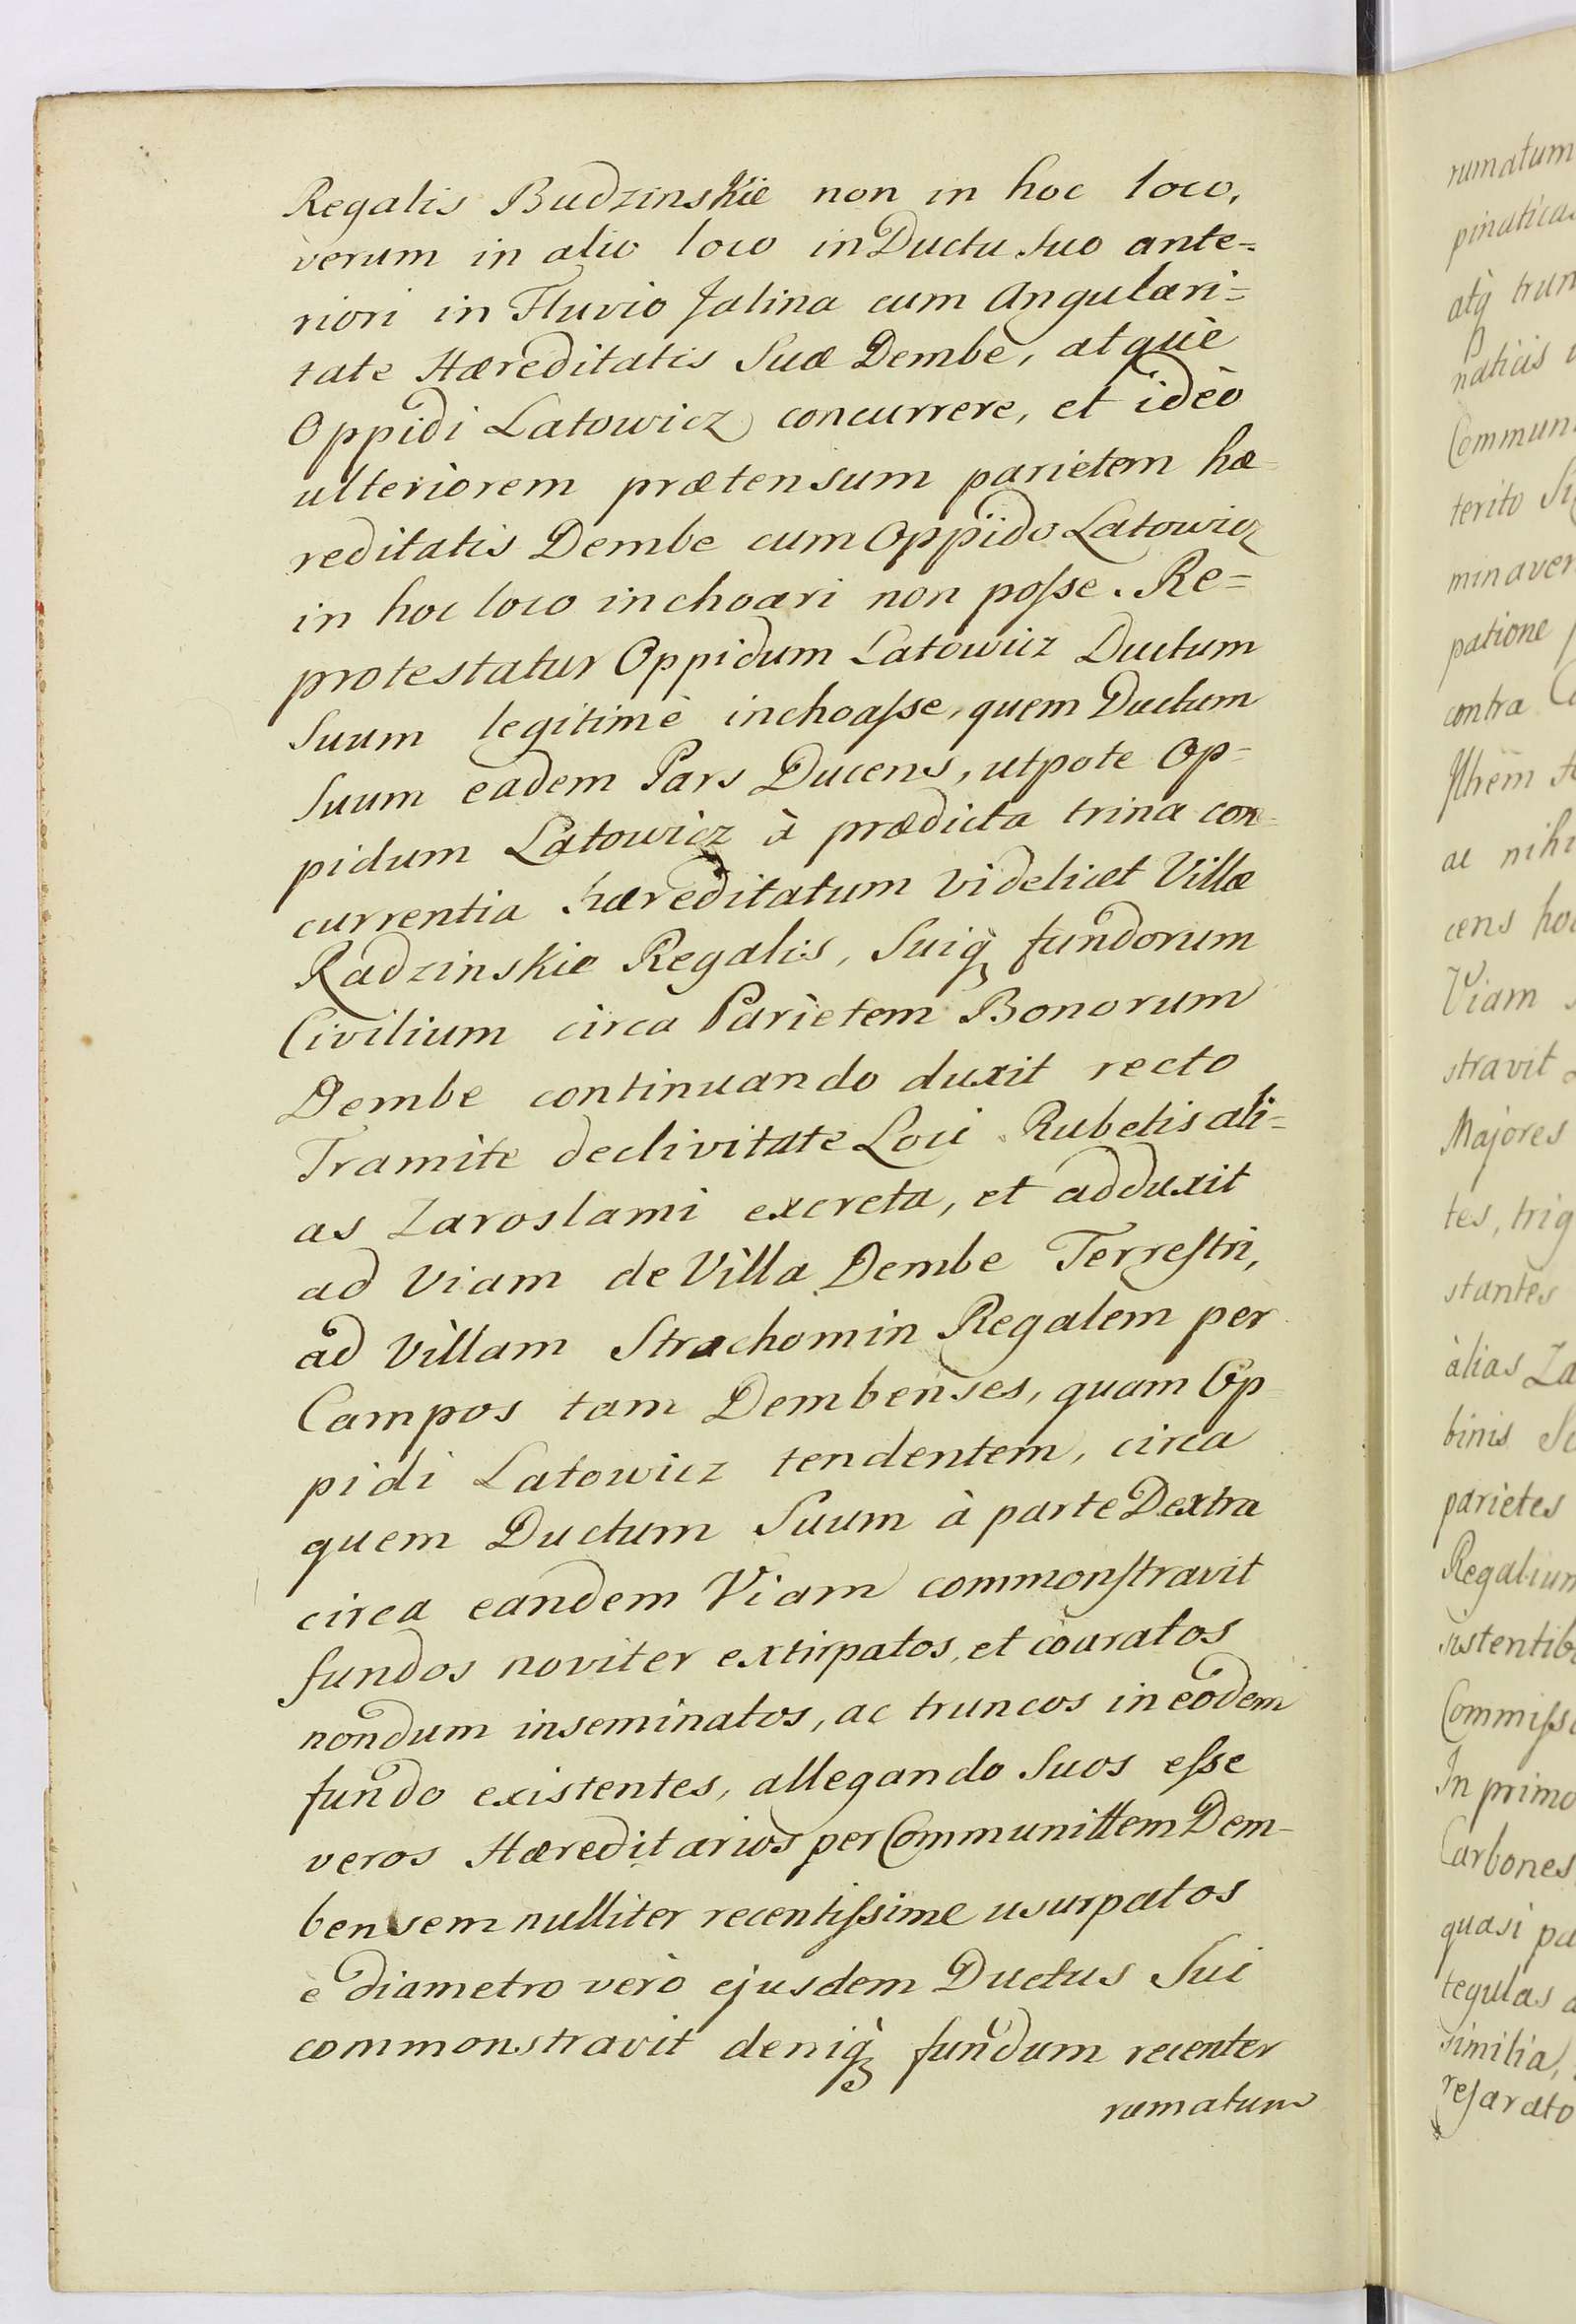 Regalis Budzinskie non in hoc loco,
verum in alio loco in Ductu Suo ante=
riori in Fluvio Jalina cum Angulari=
tate Hæreditatis Suæ Dembe, atquè
Oppidi Latowicz concurrere, et idèo
ulteriorem prætensum parietem hæ=
reditatis Dembe cum Oppido Latowicz
in hoc loco inchoari non posse. Re=
protestatur Oppidum Latowicz Ductum
Suum legitimè inchoasse, quem Ductum
Suum eadem Pars Ducens, utpote Op=
pidum Latowicz à prædicta trina con=
currentia hæreditatum videlicet Villæ
Radzinskie Regalis, Suiq fundorum
Civilium circa Parietem Bonorum
Dembe continuando duxit recto
Tramite declivitate Loci Rubetis ali=
as Zaroslami excreta, et adduxit
ad Viam de Villa Dembe Terrestri,
ad Villam Strachomin Regalem per
Campos tam Dembenses, quam Op=
pidi Latowicz tendentem, circa
quem Ductum Suum à parte Dextra
circa eandem Viam commonstravit
fundos noviter extirpatos, et coaratos
nondum inseminatos, ac truncos in eodem
fundo existentes, allegando Suos esse
veros Hæreditarios per Communittem Dem-
bensem nulliter recentissime usurpatos
è diametro verò ejusdem Ductus Sui
commonstravit deniq fundum recenter
rumatum
rumatum
pinaticas
atq trun
naticis
Commun
terito
minaver
patione
contra
ac nihi
cens hoc
Viam
stravit
Majores
tes, trig
stantes
àlias Za
binis
parietes
Regalium
sistentib
Commisso
In primo
Carbones
quasi pa
tegulas a
similia,
resarato